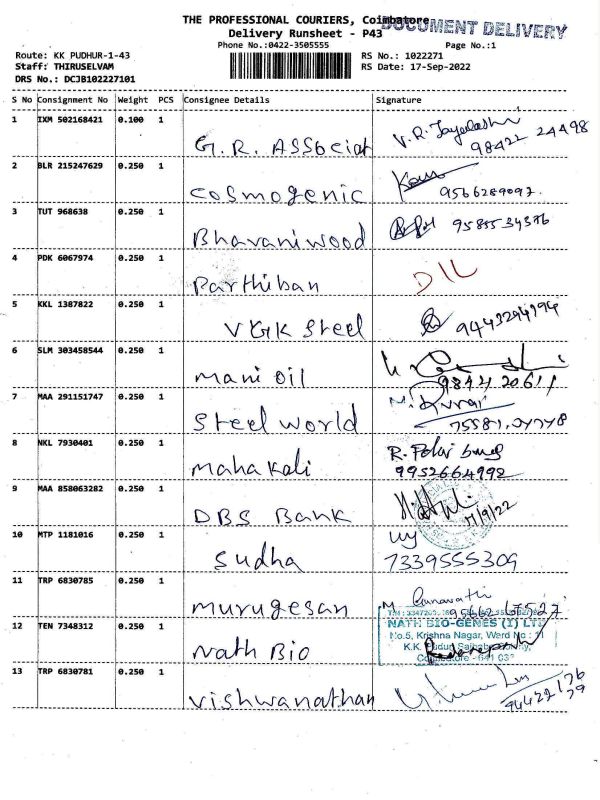 THE PROFESSIONAL COURIERS, Coimbatore
DOCUMENT DELIVERY
Delivery Runsheet - P43
Phone No.:0422-3505555 Page No.:1
Route: KK PUDHUR-1-43 RS No.: 1022271
Staff: THIRUSELVAM RS Date: 17-Sep-2022
DRS No.: DCJB102227101
S No Consignment No Weight PCS Consignee Details Signature
1 IXM 502168421 0.100 1 G.R. ASSociat V.R. Jayalakshmi
98422 24498
2 BLR 215247629 0.250 1 Cosmogenic
9566289097.
3 TUT 968638 0.250 1 Bhavaniwood 9585534376
4 PDK 6067974 0.250 1 Parthiban DIL
5 KKL 1387822 0.250 1 VGK Steel 9443294194
6 SLM 303458544 0.250 1 Mani oil
98421 20611
7 MAA 291151747 0.250 1 Steel world
8 NKL 7930401 0.250 1 Mahakali R.
9952664992
9 MAA 858063282 0.250 1 DBS Bank
17/9/22
10 MTP 1181016 0.250 1 Sudha
7339555309
11 TRP 6830785 0.250 1 Murugesan M Gunavathi
95662 67527
12 TEN 7348312 0.250 1 Nath Bio
NATH BIO-GENES (I) LTD
No.5, Krishna Nagar, Werd No : 11
K.K. Pudur, Saibaba
Coimbatore - 641 03
13 TRP 6830781 0.250 1 Vishwanathan
94422